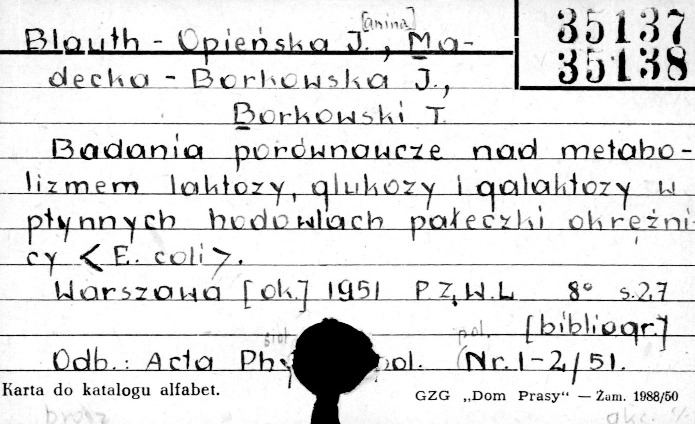 35137
35138
[anina]
Blauth - Opieńska J., Ma-
decka - Borkowska J.,
Borkowski T.
Badania porównawcze nad metabo-
lizmem laktozy, glukozy i galaktozy w
płynnych hodowlach pałeczki okrężni-
cy < E. coli >.
Warszawa [ok.] 1951 P.Z.W.L 8° s. 27
[bibliogr.]
pol.
Odb.: Acta Phy pol. (Nr. 1-2/51.
Karta do katalogu alfabet.
GZG „Dom Prasy" — Żam. 1988/50
brosz
akc.